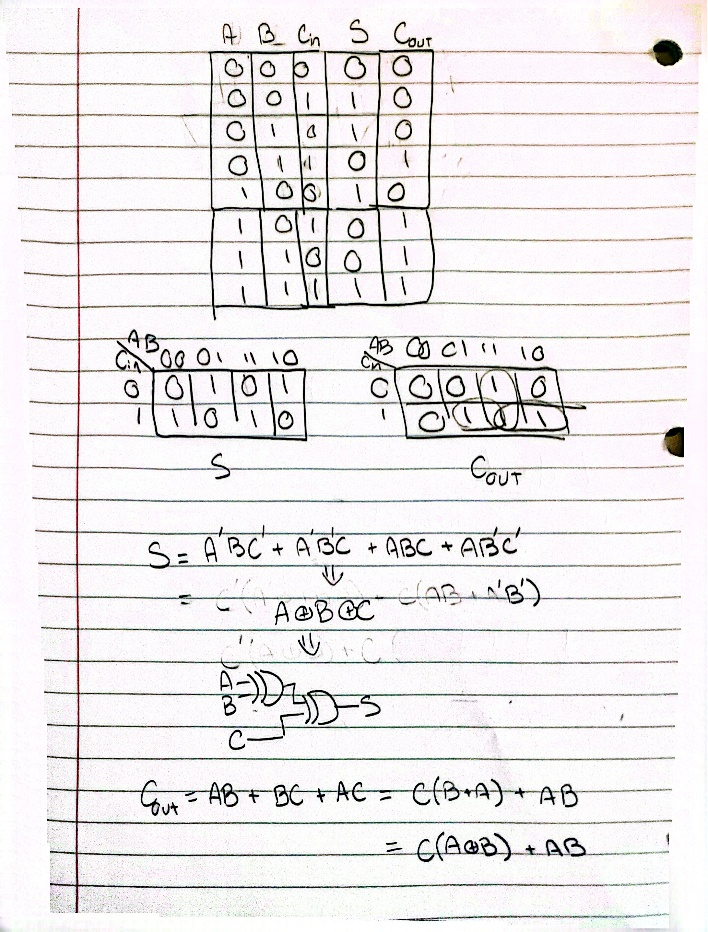 A B Cin S COUT
0 0 0 0 0
0 0 1 1 0
0 1 0 1 0
0 1 1 0 1
1 0 0 1 0
1 0 1 0 1
1 1 0 0 1
1 1 1 1 1
AB 00 01 11 10
Cin
0 0 1 0 1
1 1 0 1 0
S
AB 00 01 11 10
Cin
0 0 0 1 0
1 0 1 1
COUT
S = A'BC' + A'B'C + ABC + AB'C'
⇓
= C'(A C(AB + A'B')
A⊕B⊕C
⇓
A
B
C
S
COUT = AB + BC + AC = C(B+A) + AB
= C(A⊕B) + AB